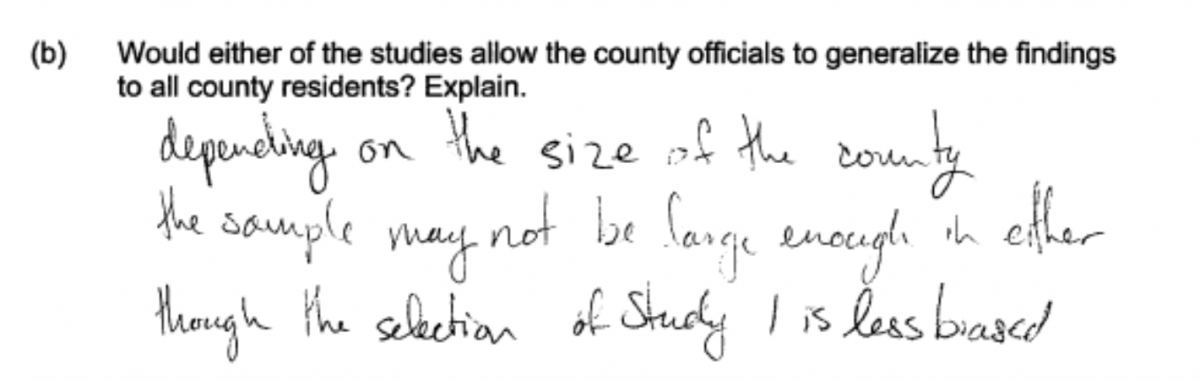 (b) Would either of the studies allow the county officials to generalize the findings
to all county residents? Explain.
depending on the size of the county
the sample may not be large enough in either
though the selection of Study 1 is less biased